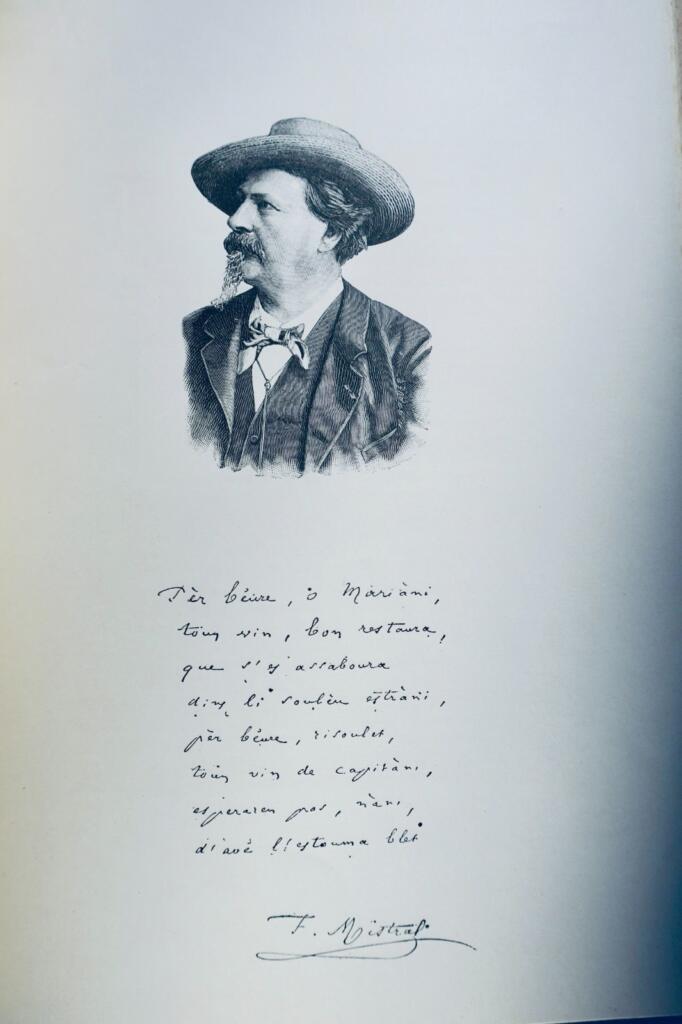 Pèr béure, ô Mariàni,
toun vin, bon restaura,
que s'es assaboura
dins li soulèu estràni,
pèr béure, risoulet,
toun vin de capitàni,
esperaren pas, nàni,
d'avé l'estouma blet
F. Mistral